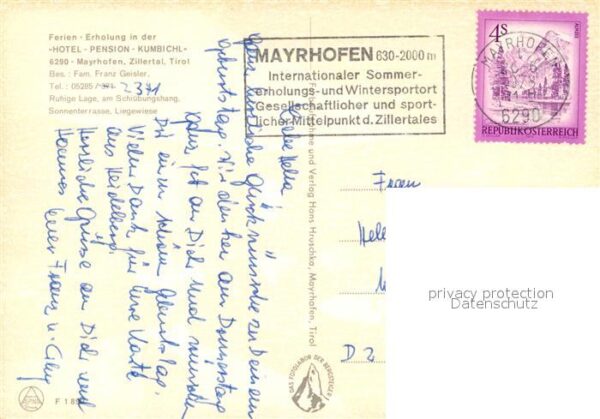 Ferien - Erholung in der
»HOTEL - PENSION - KUMBICHL«
6290 - Mayrhofen, Zillertal, Tirol
Bes.: Fam. Franz Geisler.
Tel.: 05285 / 2371
Ruhige Lage, am Schiübungshang,
Sonnenterrasse, Liegewiese
MAYRHOFEN 630-2000 m
Internationaler Sommer-
erholungs- und Wintersportort
Gesellschaftlicher und sport-
licher Mittelpunkt d. Zillertales
4S
REPUBLIK ÖSTERREICH
MAYRHOFEN
6290
Liebe Helia
herzliche Glückwünsche zu Deinem
Geburtstag. Wir denken am Donnerstag
ganz fest an Dich und wünschen
Dir einen schönen Geburtstag.
Vielen Dank für Eure Karte
aus Heidelberg.
Herzliche Grüsse an Dich und
Hannes Franz u. Cilly
Verlag Hans Hruschka, Mayrhofen, Tirol
Frau
D 2
DAS FOTOLABOR DER BERGSTEIGER
F 1
privacy protection
Datenschutz